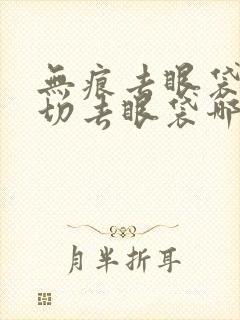 無痕去眼袋
切去眼袋哪
月半折耳